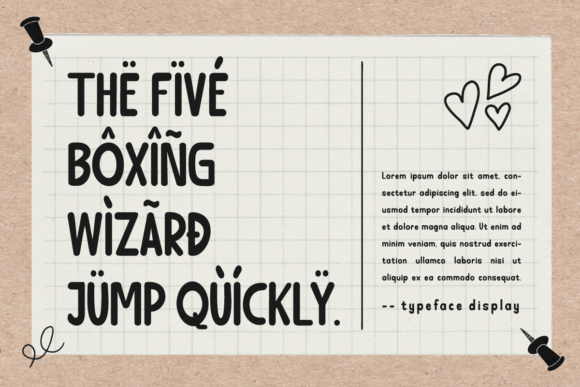 THË FÏVÉ
BÔXÎÑG
WÌZÃRĐ
JÜMP QÙÍCKLŸ.
Lorem ipsum dolor sit amet, con-
sectetur adipiscing elit, sed do ei-
usmod tempor incididunt ut labore
et dolore magna aliqua. Ut enim ad
minim veniam, quis nostrud exerci-
tation ullamco laboris nisi ut
aliquip ex ea commodo consequat.
-- typeface display